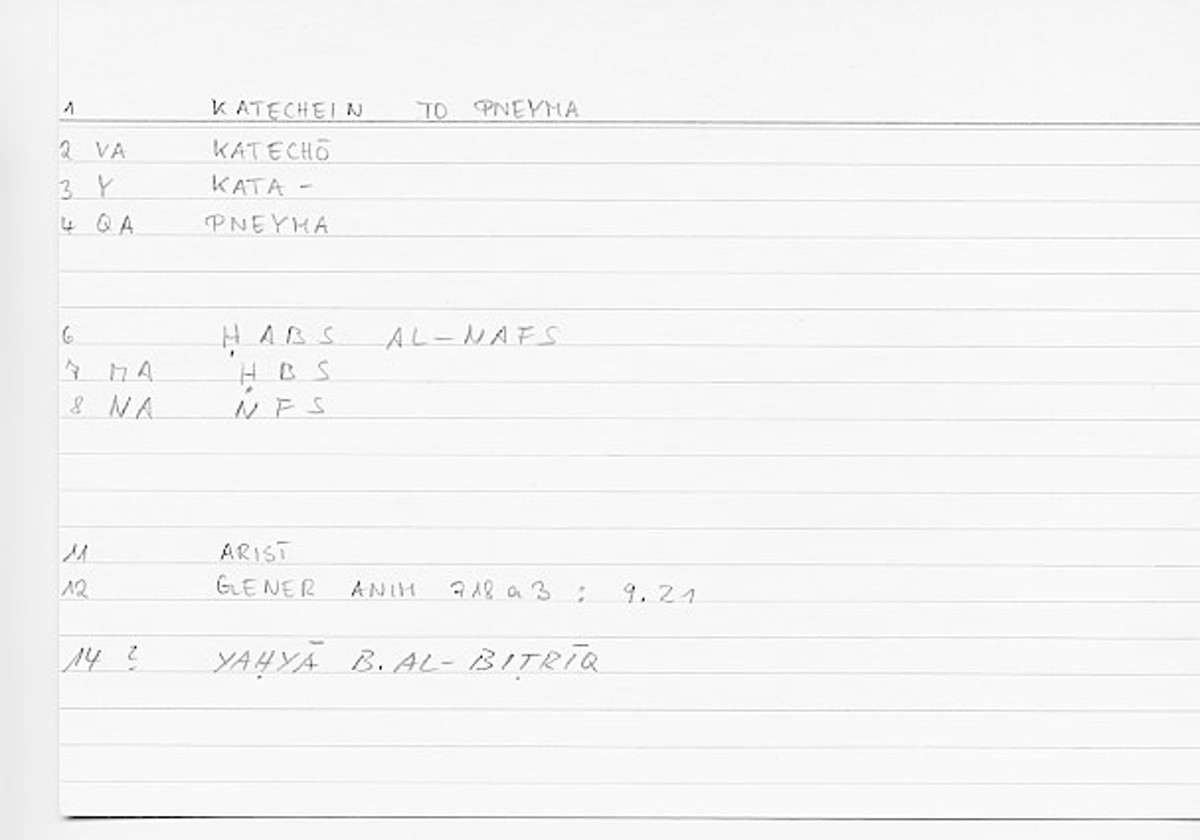 1 KATECHEIN TO PNEYMA
2 VA KATECHŌ
3 Y KATA -
4 QA PNEYMA
6 ḤABS AL-NAFS
7 MA ḤBS
8 NA NFS
11 ARIST
12 GENER ANIM 718a3 : 9.21
14 ? YAḤYĀ B. AL-BIṬRĪQ